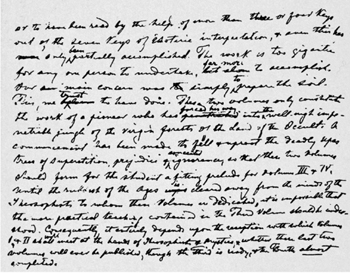 or to have been read by the help of more than three or four Keys
out of the seven Keys of Esoteric interpretation, & even this has
been only partially accomplished. The work is too gigantic
for any one person to undertake, far more to accomplish.
Our main concern was simply to prepare the soil.
This, we trust to have done. These two volumes only constitute
the work of a pioneer who has forced his way into the well-nigh impe-
netrable jungle of the virgin forests of the Land of the Occult. A
commencement has been made to fell & uproot the deadly upas
trees of superstition, prejudice & conceited ignorance, so that these two volumes
should form for the student a fitting prelude for Volumes III & IV.
Until the rubbish of the Ages is cleared away from the minds of the
Theosophists to whom these Volumes are dedicated, it is impossible that
the more practical teaching contained in the Third Volume should be under-
stood. Consequently, it entirely depends upon the reception with which Volumes
I & II shall meet at the hands of Theosophists & Mystics, whether these last two
volumes will ever be published, though the third is ready, & the fourth almost
completed.